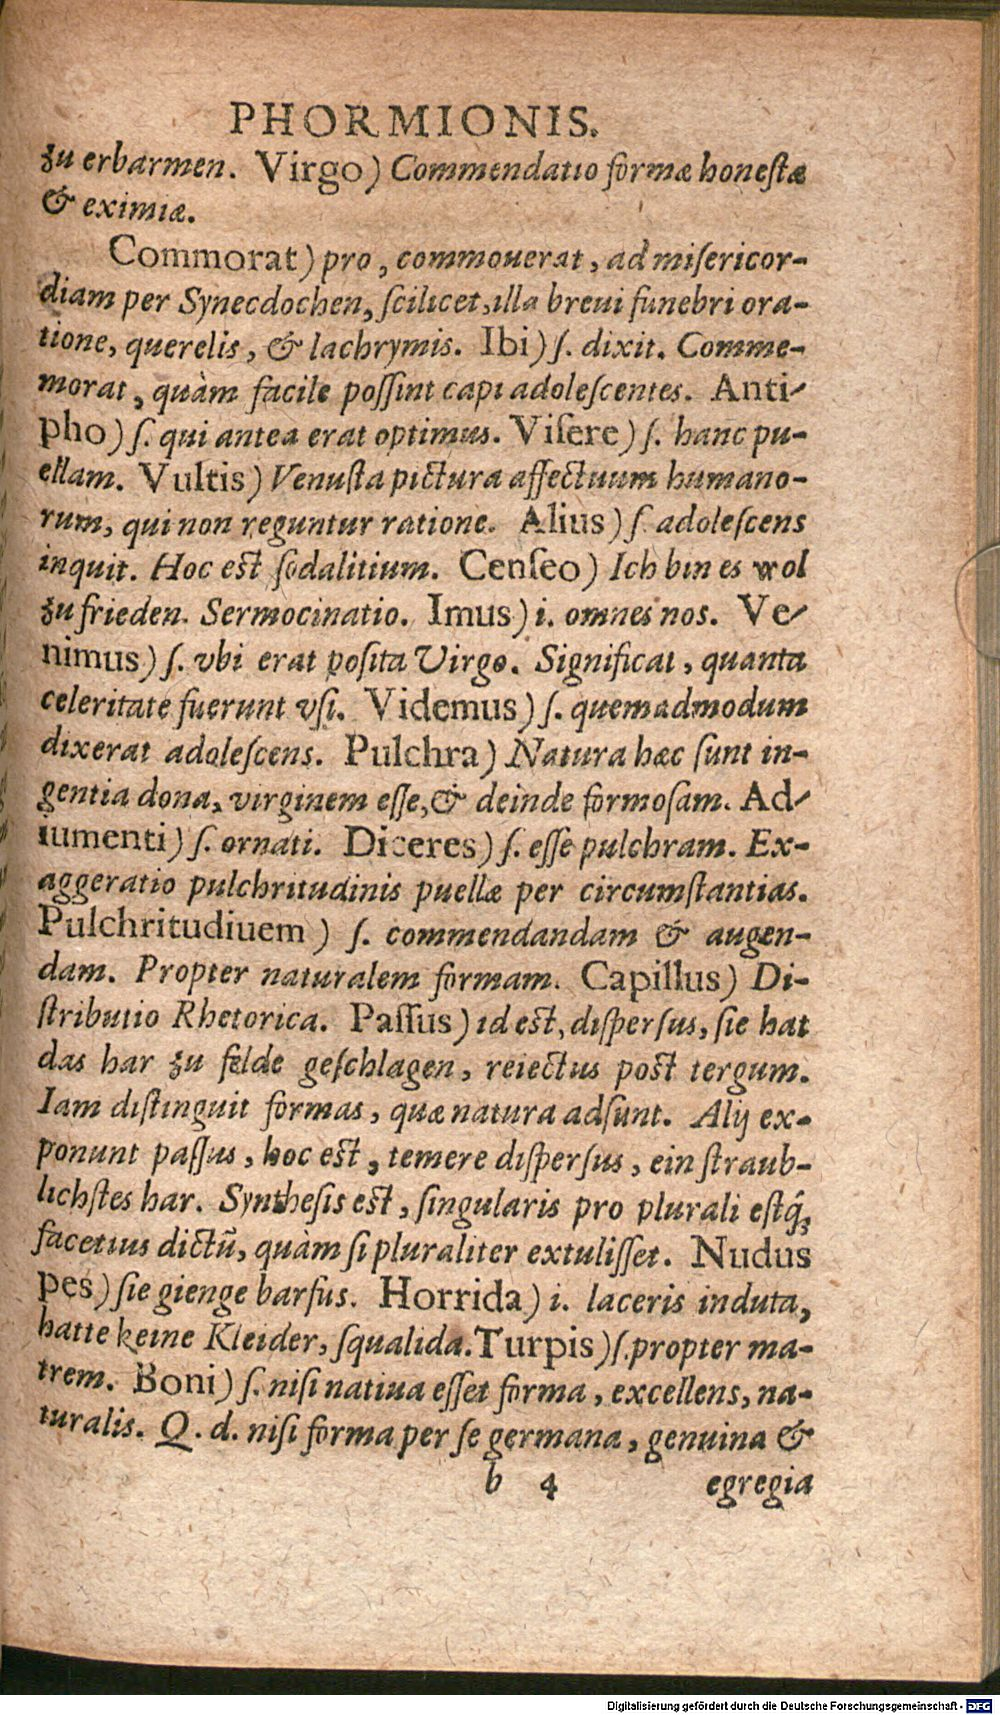 PHORMIONIS.
zu erbarmen. Virgo) Commendatio formæ honeſtæ
& eximiæ.
Commorat) pro, commouerat, ad miſericor-
diam per Synecdochen, ſcilicet, illa breui funebri ora-
tione, querelis, & lachrymis. Ibi) ſ. dixit. Comme-
morat, quàm facile poſſint capi adoleſcentes. Anti-
pho) ſ. qui antea erat optimus. Viſere) ſ. hanc pu-
ellam. Vultis) Venuſta pictura affectuum humano-
rum, qui non reguntur ratione. Alius) ſ adoleſcens
inquit. Hoc eſt ſodalitium. Cenſeo) Ich bin es wol
zu frieden. Sermocinatio. Imus) i. omnes nos. Ve-
nimus) ſ. vbi erat poſita Virgo. Significat, quanta
celeritate fuerunt vſi. Videmus) ſ. quemadmodum
dixerat adoleſcens. Pulchra) Natura hæc ſunt in-
gentia dona, virginem eſſe, & deinde formoſam. Ad-
iumenti) ſ. ornati. Diceres) ſ. eſſe pulchram. Ex-
aggeratio pulchritudinis puellæ per circumſtantias.
Pulchritudiuem) ſ. commendandam & augen-
dam. Propter naturalem formam. Capillus) Di-
ſtributio Rhetorica. Paſſus) id eſt, diſperſus, ſie hat
das har zu felde geſchlagen, reiectus poſt tergum.
Iam diſtinguit formas, quæ natura adſunt. Alij ex-
ponunt paſſus, hoc eſt, temere diſperſus, ein ſtraub-
lichſtes har. Syntheſis eſt, ſingularis pro plurali eſtq́;
facetius dictũ, quàm ſi pluraliter extuliſſet. Nudus
pes) ſie gienge barfus. Horrida) i. laceris induta,
hatte keine Kleider, ſqualida. Turpis) ſ. propter ma-
trem. Boni) ſ. niſi natiua eſſet forma, excellens, na-
turalis. Q. d. niſi forma per ſe germana, genuina &
b 4 egregia
Digitalisierung gefördert durch die Deutsche Forschungsgemeinschaft - DFG